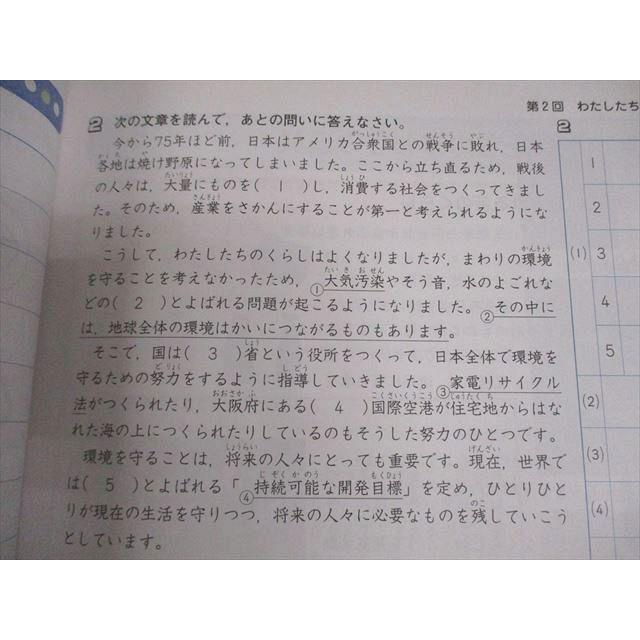 第2回 わたしたち
2 次の文章を読んで，あとの問いに答えなさい。
今から75年ほど前，日本はアメリカ合衆国との戦争に敗れ，日本
各地は焼け野原になってしまいました。ここから立ち直るため，戦後
の人々は，大量にものを( 1 )し，消費する社会をつくってきまし
た。そのため，産業をさかんにすることが第一と考えられるようにな
りました。
こうして，わたしたちのくらしはよくなりましたが，まわりの環境
を守ることを考えなかったため，①大気汚染やそう音，水のよごれな
どの( 2 )とよばれる問題が起こるようになりました。②その中に
は，地球全体の環境はかいにつながるものもあります。
そこで，国は( 3 )省という役所をつくって，日本全体で環境を
守るための努力をするように指導していきました。③家電リサイクル
法がつくられたり，大阪府にある( 4 )国際空港が住宅地からはな
れた海の上につくられたりしているのもそうした努力のひとつです。
環境を守ることは，将来の人々にとっても重要です。現在，世界で
は( 5 )とよばれる「④持続可能な開発目標」を定め，ひとりひと
りが現在の生活を守りつつ，将来の人々に必要なものを残していこう
としています。
2
(1)
1
2
3
4
5
(2)
(3)
(4)